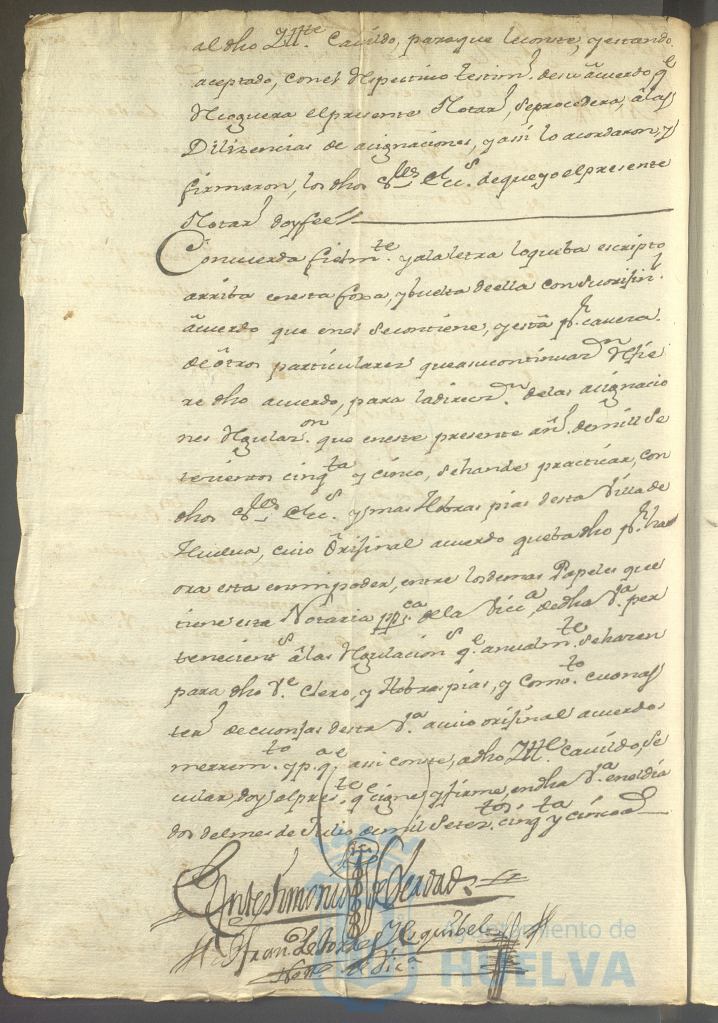 al dho Ylltte. Cavildo, para que le conste, y estando
aceptado, con el respectivo testimo. de su acuerdo qe
el presente Notaro, se procedera, a las
Dilixencias de asignaciones, y assi lo acordaron, y
firmaron, los dhos Sres. de que yo el presente
Notaro doy fee
Concuerda fielmte. y a la letra lo que ba escripto
arriba en esta foxa, y buelta de ella con su orijinl.
acuerdo que en el se contiene, y esta pr. cavera.
de otros particulares que a su continuazn refie
re dho acuerdo, para la direczn. de las asignacio
nes que en este presente año de mill se
tecientos cinqta y cinco, se han de practicar, con
dhos Sres. y mas Obras pias desta Villa de
Huelva, cuio Orijinal acuerdo queda dho pr. ha
ora esta en mi poder, entre los demas Papeles que
tiene esta Notaria ppca. de la Vica. de dha Va. per
tenecients a las Regulacions qe. anualmte. se hazen
para dho Ve. Clero, y Obras pias, y
desta Va. a cuio orijinal acuerdo
me rremto. y pa. qe. assi conste, a dho Ylle. Cavildo, se
cular, doy el preste. qe signe, y firme, en dha Va. en el dia
dos del mes de Julio de mil Setetos. cinqta y cinco as
En testimonio de Verdad
Franco de
Notto. de Vica
Ayuntamiento de
HUELVA